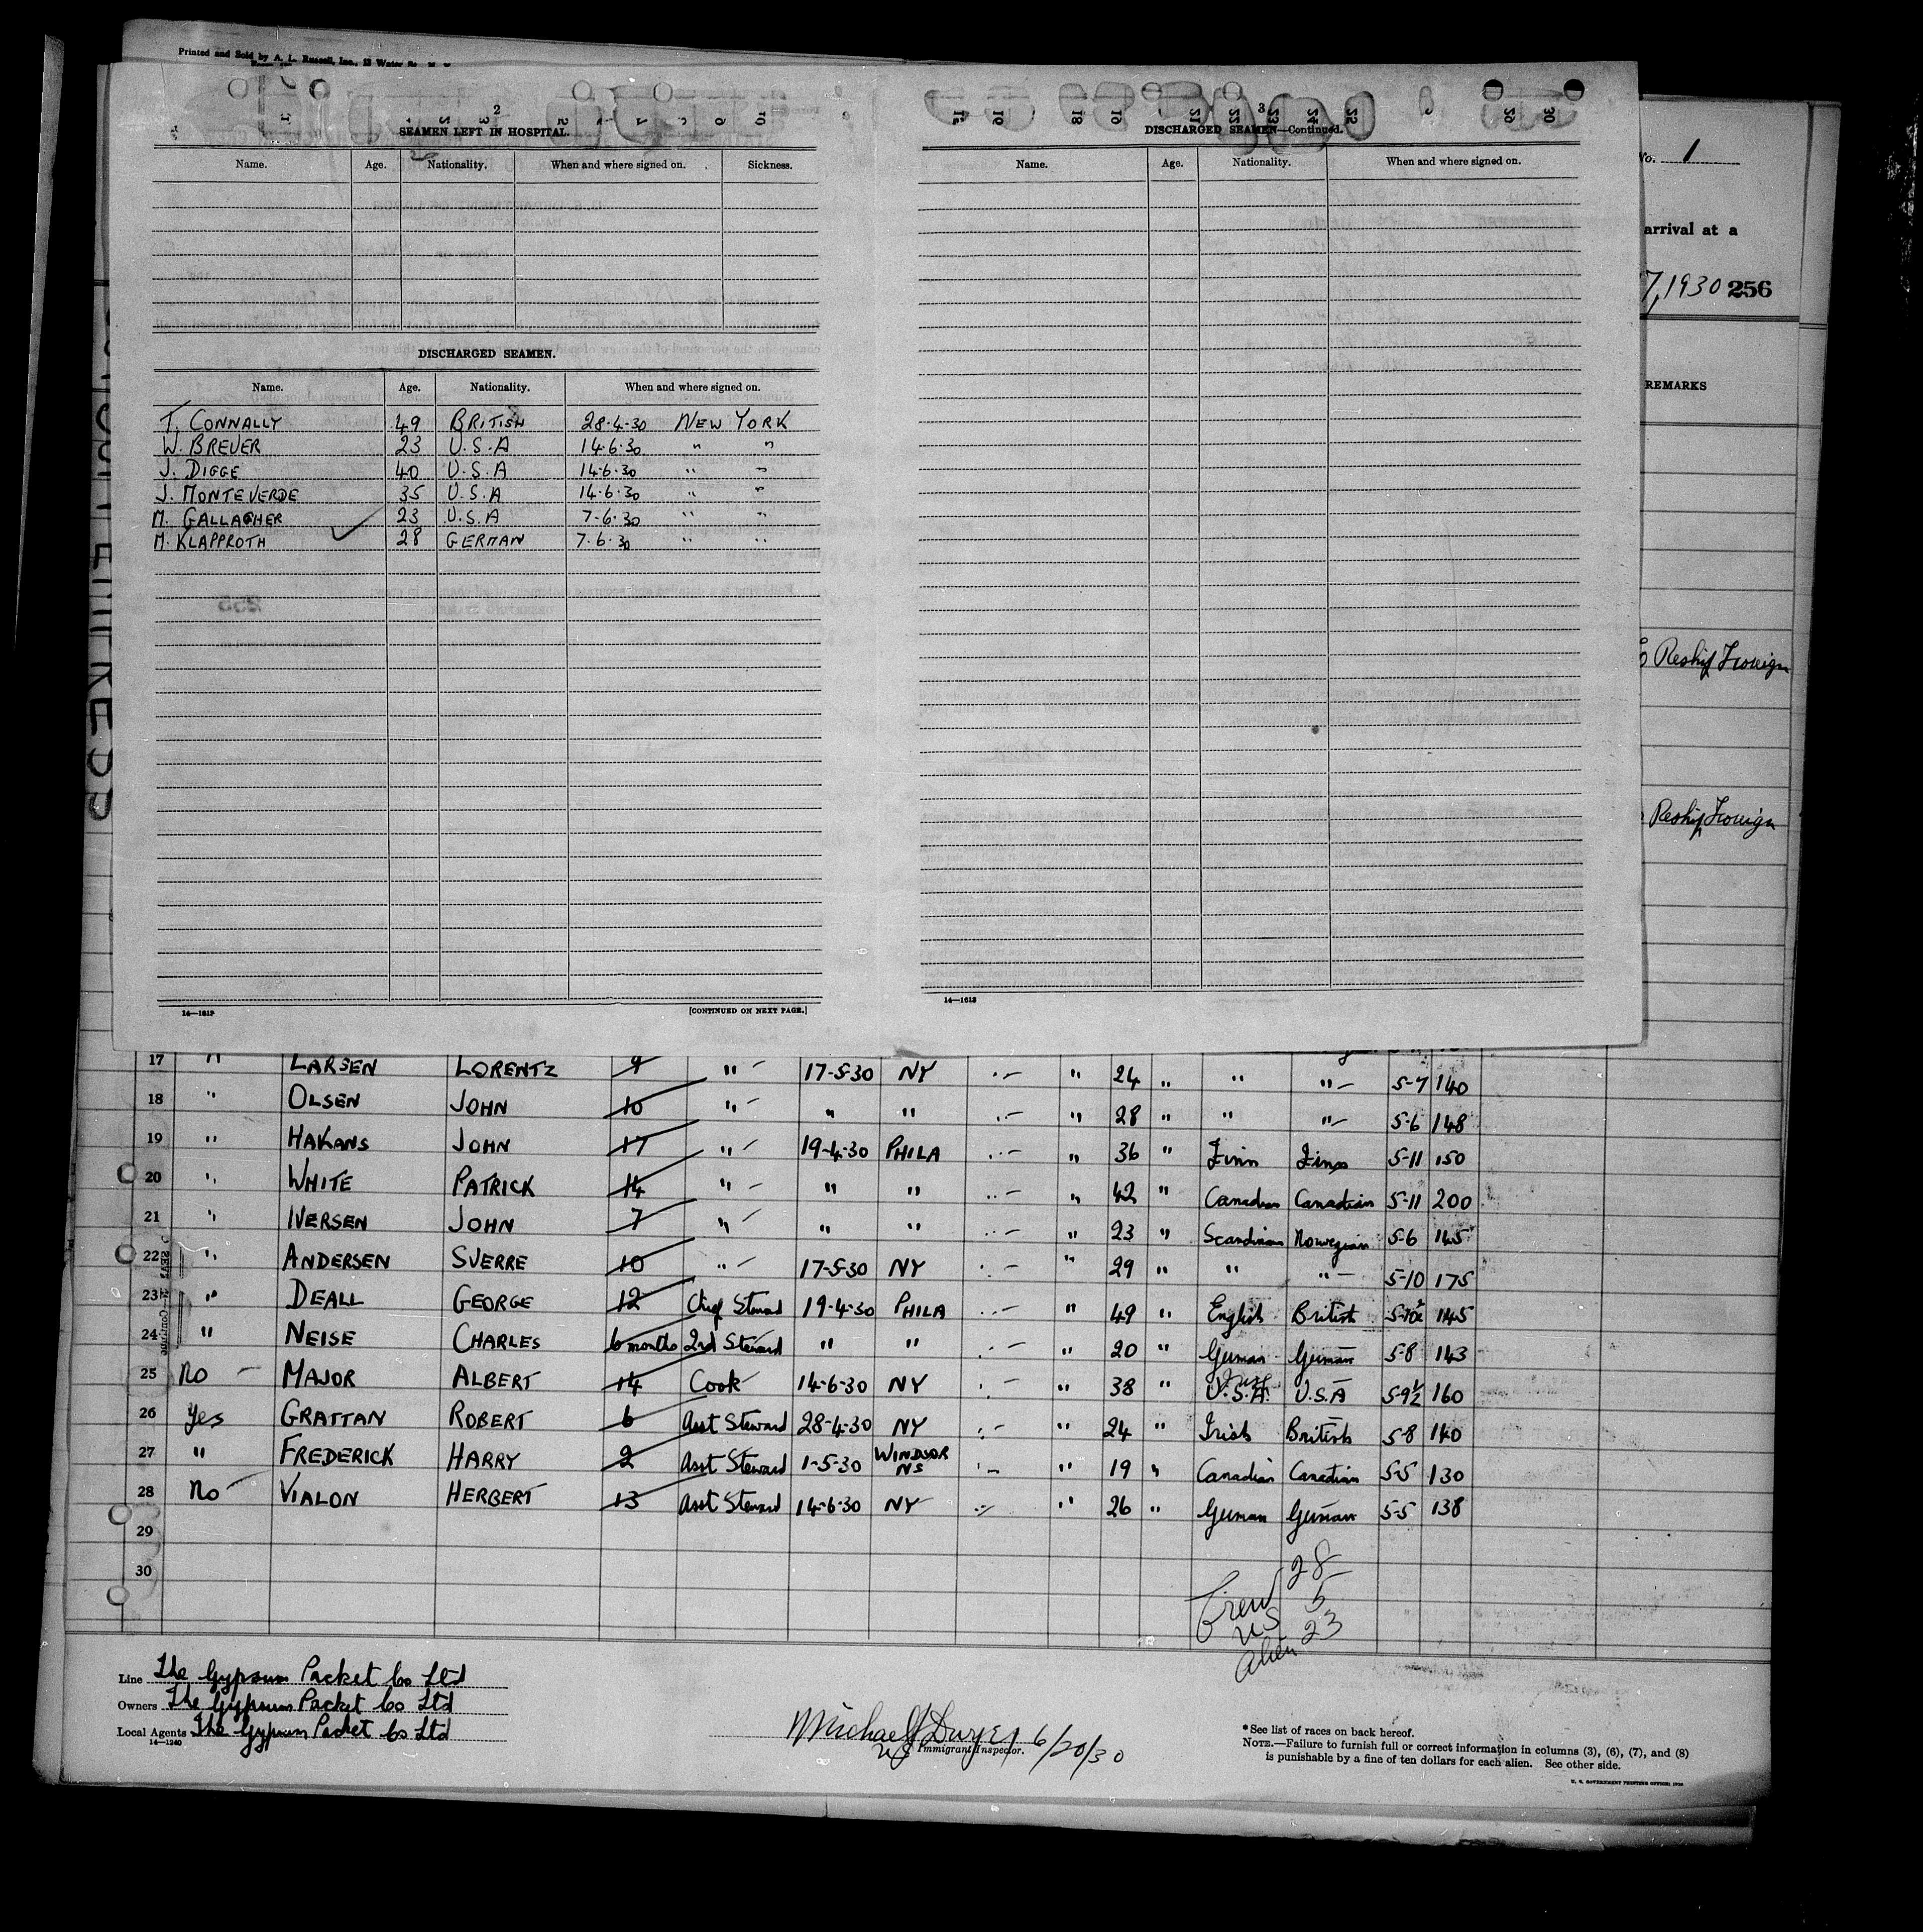 Printed and Sold by A. L. Russell, Inc., 15 Water
2
SEAMEN LEFT IN HOSPITAL.
Name. Age. Nationality. When and where signed on. Sickness.
DISCHARGED SEAMEN.
Name. Age. Nationality. When and where signed on.
T. CONNALLY 49 BRITISH 28-4-30 NEW YORK
W. BREUER 23 U.S.A 14-6-30 " "
J. DIGGE 40 U.S.A 14-6-30 " "
J. MONTEVERDE 35 U.S.A 14-6-30 " "
M. GALLAGHER 23 U.S.A 7-6-30 " "
M. KLAPPROTH 28 GERMAN 7-6-30 " "
14—1613 [CONTINUED ON NEXT PAGE.]
3
DISCHARGED SEAMEN—Continued.
Name. Age. Nationality. When and where signed on.
14—1613
No. 1
arrival at a
7, 1930 256
REMARKS
Reship Foreign
Reship Foreign
17 " LARSEN LORENTZ 9 " 17-5-30 NY " " 24 " " " 5-7 140
18 " OLSEN JOHN 10 " " " " " 28 " " " 5-6 148
19 " HAKANS JOHN 17 " 19-4-30 PHILA " " 36 " Finn Finn 5-11 150
20 " WHITE PATRICK 14 " " " " " 42 " Canadian Canadian 5-11 200
21 " IVERSEN JOHN 7 " " " " " 23 " Scandinavian Norwegian 5-6 145
22 " ANDERSEN SVERRE 10 " 17-5-30 NY " " 29 " " " 5-10 175
23 " DEALL GEORGE 12 Chief Steward 19-4-30 PHILA " " 49 " English British 5-10½ 145
24 " NEISE CHARLES 6 months 2nd Steward " " " " 20 " German German 5-8 143
25 No MAJOR ALBERT 14 Cook 14-6-30 NY " " 38 " U.S.A. U.S.A 5-9½ 160
26 Yes GRATTAN ROBERT 6 Asst Steward 28-4-30 NY " " 24 " Irish British 5-8 140
27 " FREDERICK HARRY 2 Asst Steward 1-5-30 WINDSOR NS " " 19 " Canadian Canadian 5-5 130
28 No VIALON HERBERT 13 Asst Steward 14-6-30 NY " " 26 " German German 5-5 138
29
30
Crew 28
US 5
Alien 23
Line The Gypsum Packet Co Ltd
Owners The Gypsum Packet Co Ltd
Local Agents The Gypsum Packet Co Ltd
14—1240
Michael J Dwyer 6/20/30
US Immigrant Inspector.
*See list of races on back hereof.
NOTE.—Failure to furnish full or correct information in columns (3), (6), (7), and (8)
is punishable by a fine of ten dollars for each alien. See other side.
U. S. GOVERNMENT PRINTING OFFICE: 1930